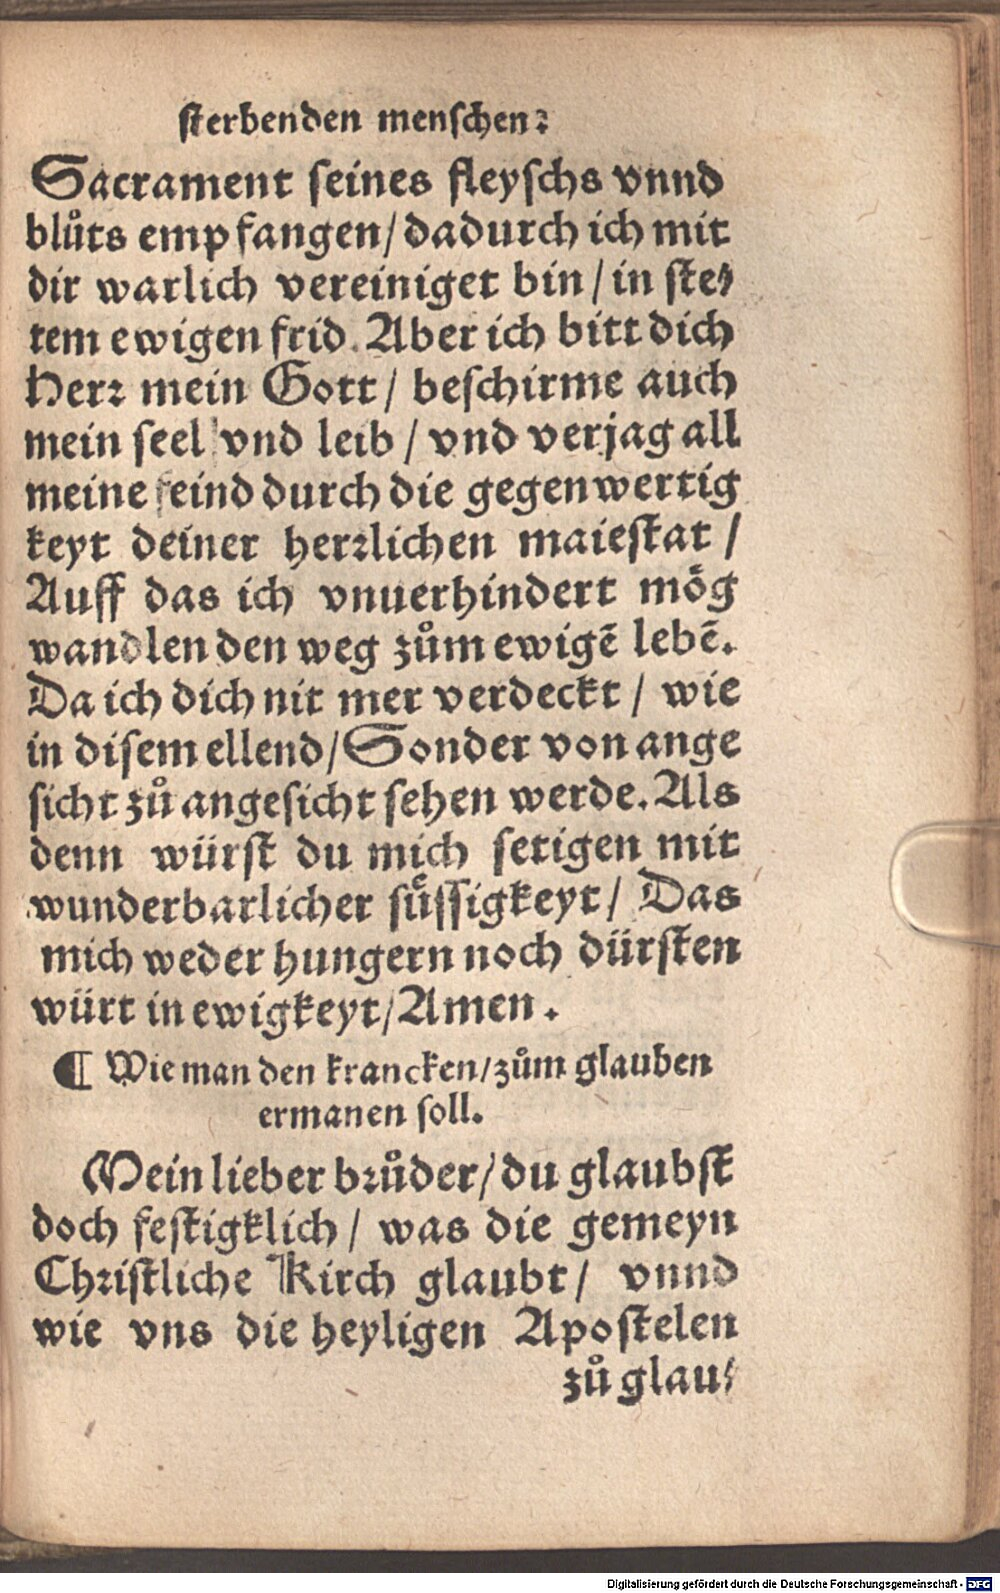 sterbenden menschen:
Sacrament seines fleyschs vnnd
blůts empfangen/ dadurch ich mit
dir warlich vereiniget bin / in ste⸗
tem ewigen frid. Aber ich bitt dich
Herꝛ mein Gott / beschirme auch
mein seel vnd leib / vnd verjag all
meine feind durch die gegenwertig
keyt deiner herꝛlichen maiestat /
Auff das ich vnuerhindert mög
wandlen den weg zům ewigẽ lebẽ.
Da ich dich nit mer verdeckt / wie
in disem ellend/ Sonder von ange
sicht zů angesicht sehen werde. Als
denn würst du mich setigen mit
wunderbarlicher süssigkeyt / Das
mich weder hungern noch dürsten
würt in ewigkeyt/ Amen.
¶ Wie man den krancken/ zům glauben
ermanen soll.
Mein lieber bꝛůder/ du glaubst
doch festigklich / was die gemeyn
Chꝛistliche Kirch glaubt / vnnd
wie vns die heyligen Apostelen
zů glau⸗
Digitalisierung gefördert durch die Deutsche Forschungsgemeinschaft - DFG